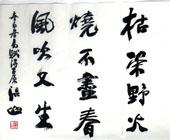 枯榮野火
燒不盡春
風吹又生